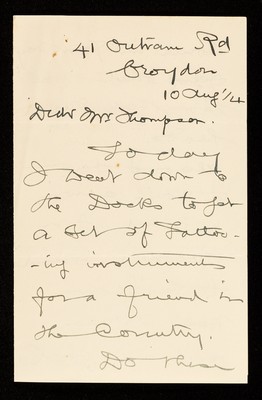 41 Outram Rd
Croydon
10 Aug '14
Dear Mr Thompson.
To day
I went down to
the Docks to get
a set of Tattoo-
-ing instruments
for a friend in
the Country.
Do these